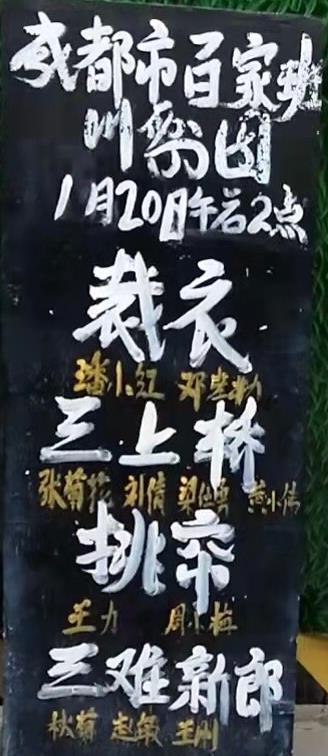 成都市百家班
川剧团
1月20日午后2点
裁衣
潘小红 邓
三上桥
张菊 刘倩 梁 黄小伟
挑帘
王力 周小梅
三难新郎
秋菊 赵敏 王刚